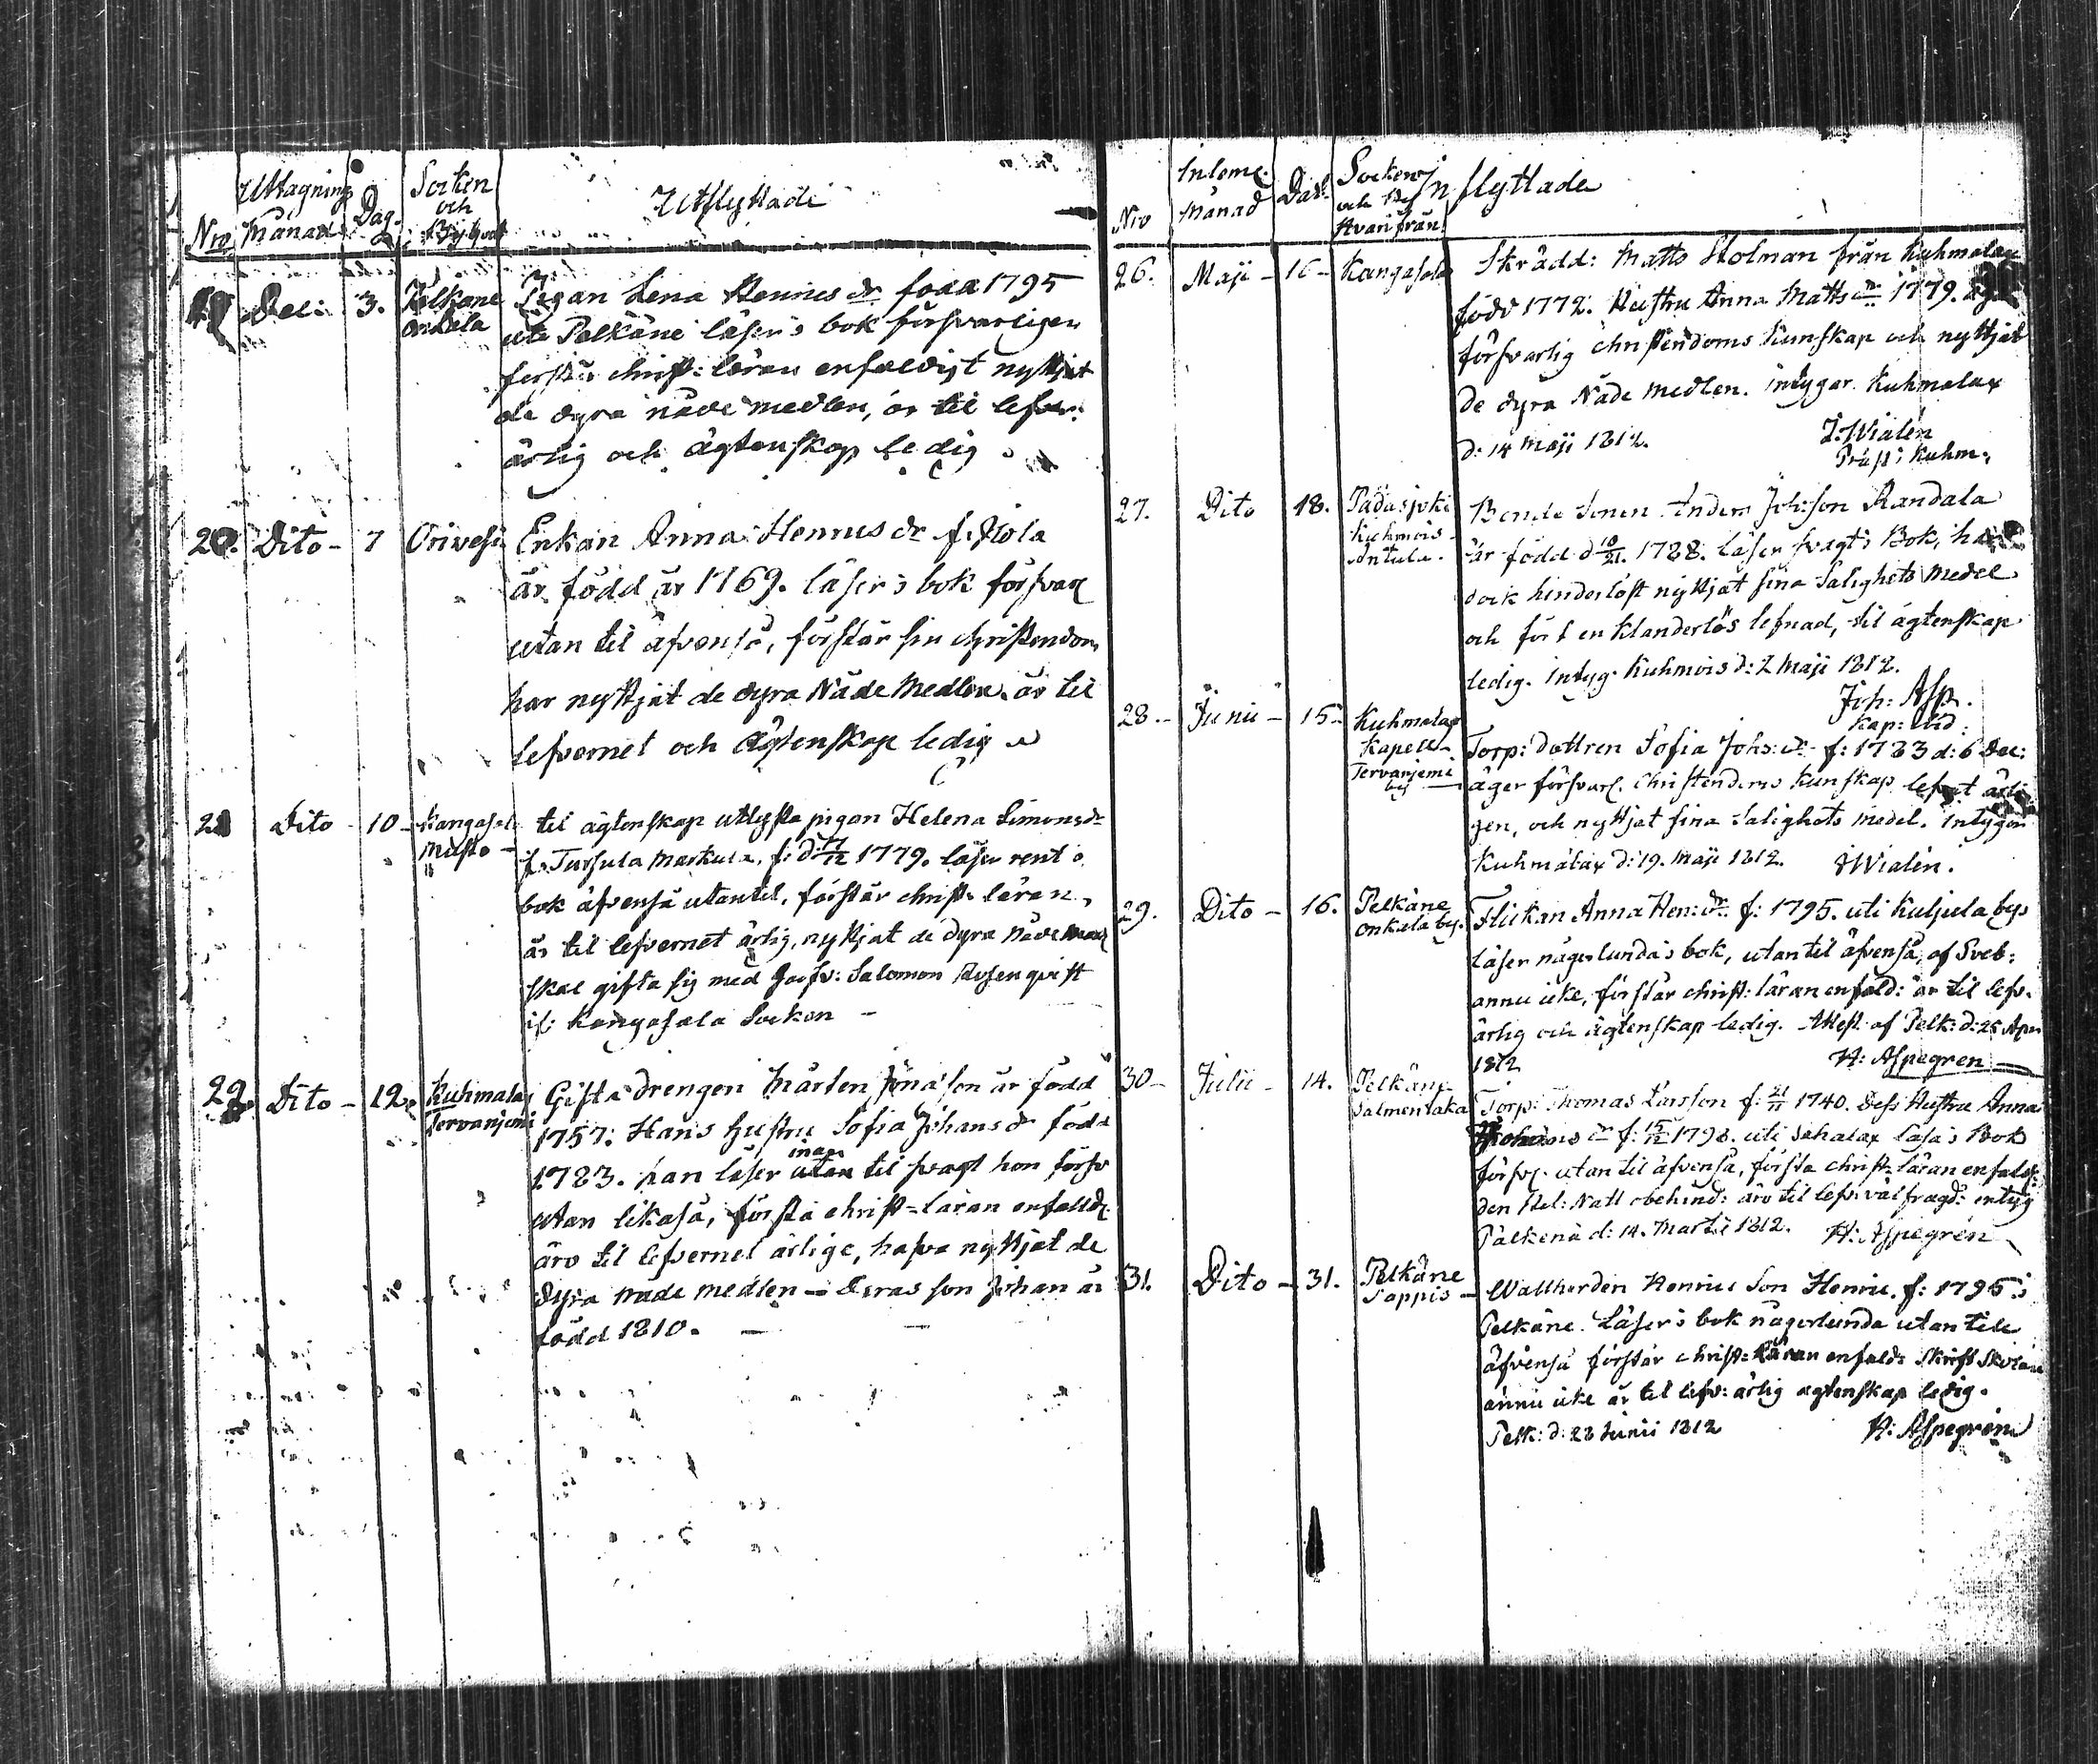 Uttagnings
Månad
Nro
Dag.
Socken
och
By hvart
Utflyttade
19 Dec: 3. Pelkäne
Onkela
Pigan Lena Henrics dr. född 1795
uti Pelkäne läser i bok försvarligen
förstår christ: läran enfaldigt nyttjat
de dyra nåde medlen, är til lefver:
ärlig och ägtenskap ledig
20. Dito - 7 Orivesi
Enkan Anna Henrics dr f. Alola
är född år 1769. läser i bok försvarl
utan til äfvenså, förstår sin christendom
har nyttjat de dyra Nåde Medlen. är til
lefvernet och ägtenskap ledig
21 Dito - 10 - Kangasala
til ägtenskap utlysta pigan Helena Simonsdr
f. Tursula Markula. f: d: 17/12 1779. läser rent i
bok äfvensä utantil, förstår christ. läran,
är til lefvernet ärlig, nyttjat de dyra nåde med
skal gifta sig med Salomon Rosenqvist
i: Kangasala Socken -
22. Dito - 12. Kuhmalax
Tervanjemi
Gifta drengen Mårten Jöna'son är född
1757: Hans hustru Sofia Johans dr född
1783. han läser utan innan til svagt hon försv
utan likaså, förstå christ=läran enfalld:
äro til lefvernet ärlige, hafva nyttjat de
dyra nåde medlen - deras son Johan är
född 1810. -
Nro
Inlem:
Månad
Dat:
Socken
och By
hvarifrån
Inflyttade
26. Maji - 16 - Kangasala
Skrädd: Matts Holman från Kuhmalax
född 1772. Hustru Anna Matts dr 1779. äga
försvarlig Christendoms Kunskap och nyttjat
de dyra Nåde Medlen. intygar. Kuhmalax
d: 14 Maji 1812.
J. Wialén
Präst i Kuhm:
27. Dito 18. Padasjoki
Kuhmois -
Antula.
Bonde Sonen Anders Joh:son Randala
är född d 10/21. 1788. Läser svagt i Bok, har
dock hinderlöst nyttjat sina Salighets Medel
och fört en klanderlös lefnad, til ägtenskap
ledig. Intyg. Kuhmois d: 2 Maji 1812.
Joh: Asp.
Kap:
28. - Junii - 15 - Kuhmalax
Kapell -
Tervanjemi
by
Torp: dottren Sofia Johs: dr f: 1783 d: 6 Dec:
äger försvarl. Christendoms Kunskap lefvt ärli
gen, och nyttjat sina Salighets Medel. Intygar
Kuhmalax d: 19. Maji 1812. J Wialén.
29. Dito - 16. Pelkäne
Onkala by.
Flickan Anna Hen: dr. f: 1795. uti Kuljula by
Läser någorlunda i bok, utan til äfvenså, af Sveb:
ännu icke, förstår christ: läran enfald: är til lefv.
ärlig och ägtenskap ledig. Attest af Pelk: d: 25 Apr
1812 H: Aspegren
30 - Julii - 14. Pelkäne
Salmentaka
Torp: Thomas Larsson f: 21/11 1740. Dess Hustru Anna
Thomas dr f: 15/12 1798. uti Sahalax läsa i Bok
försv. utan til äfvenså, förstå christ: läran enfald:
den Hel: Natt obehind: äro til lefv: väl frägd: intyg
Pälkenä d: 14. Martii 1812. H: Aspegrén
31. Dito - 31. Pelkäne
Pappis -
Wallherden Henric Son Henric. f: 1795 i
Pelkäne. Läser i bok någorlunda utan till
äfvenså förstår christ: läran enfald: Skrift Skolan
ännu icke är til lefv: ärlig ägtenskap ledig.
Pelk: d: 28 Junii 1812 H: Aspegrén